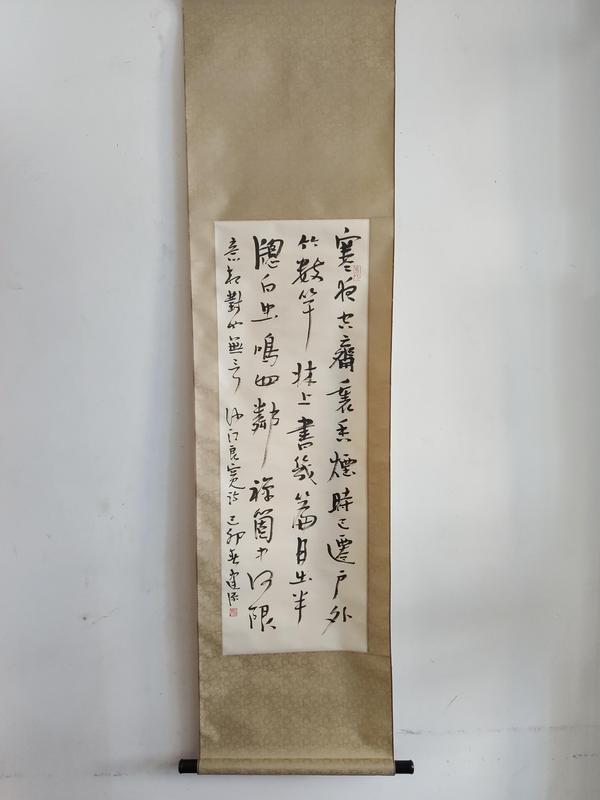 寒夜空齋裏香煙時已遷戶外
竹數竿牀上書幾篇月出半
牕白虫鳴四鄰禅箇中何限
意相對也無言 沙门良寬詩 己卯春